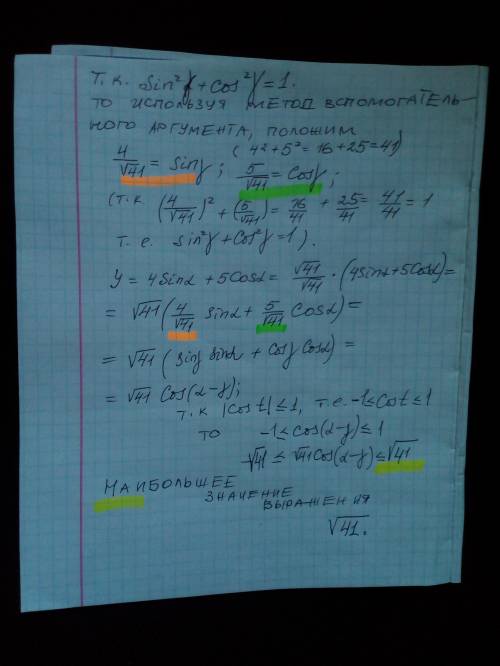 Т.К. sin²γ + cos²γ = 1.
ТО ИСПОЛЬЗУЯ МЕТОД ВСПОМОГАТЕЛЬ-
НОГО АРГУМЕНТА, ПОЛОЖИМ
(4² + 5² = 16 + 25 = 41)
4/√41 = sinγ; 5/√41 = cosγ;
(Т.К (4/√41)² + (5/√41)² = 16/41 + 25/41 = 41/41 = 1
Т.е. sin²γ + cos²γ = 1).
y = 4sinα + 5cosα = √41/√41 · (4sinα + 5cosα) =
= √41 (4/√41 sinα + 5/√41 cosα) =
= √41 (sinγ sinα + cosγ cosα) =
= √41 cos(α-γ);
Т.К |cos t| ≤ 1, т.е. -1 ≤ cos t ≤ 1
ТО -1 ≤ cos(α-γ) ≤ 1
-√41 ≤ √41 cos(α-γ) ≤ √41
НАИБОЛЬШЕЕ
ЗНАЧЕНИЕ
ВЫРАЖЕНИЯ
√41.